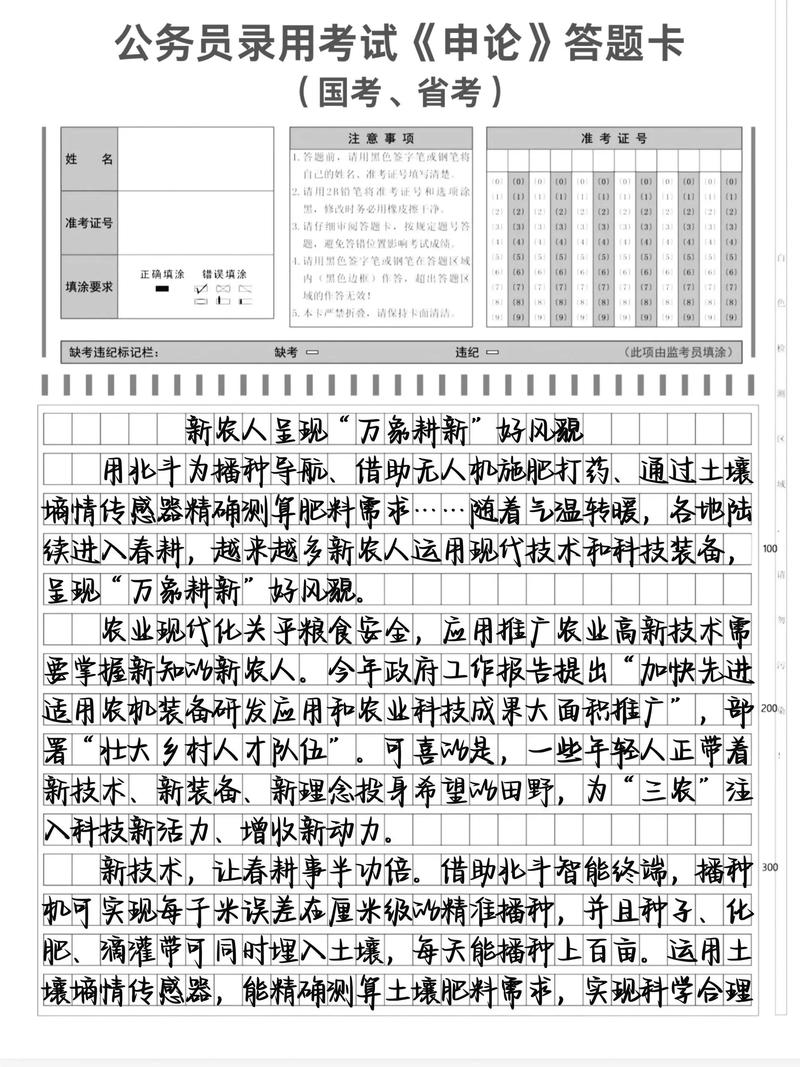 公务员录用考试《申论》答题卡
（国考、省考）
姓 名
准考证号
填涂要求
正确填涂 错误填涂
注意事项
1.答题前，请用黑色签字笔或钢笔将
自己的姓名、准考证号填写清楚。
2.请用2B铅笔将准考证号和选项涂
黑，修改时务必用橡皮擦干净。
3.请仔细审阅答题卡，按规定题号答
题，避免答错位置影响考试成绩。
4.请用黑色签字笔或钢笔在答题区域
内（黑色边框）作答，超出答题区
域的作答无效！
5.本卡严禁折叠，请保持卡面清洁。
准考证号
(0) (0) (0) (0) (0) (0) (0) (0) (0) (0) (0) (0)
(1) (1) (1) (1) (1) (1) (1) (1) (1) (1) (1) (1)
(2) (2) (2) (2) (2) (2) (2) (2) (2) (2) (2) (2)
(3) (3) (3) (3) (3) (3) (3) (3) (3) (3) (3) (3)
(4) (4) (4) (4) (4) (4) (4) (4) (4) (4) (4) (4)
(5) (5) (5) (5) (5) (5) (5) (5) (5) (5) (5) (5)
(6) (6) (6) (6) (6) (6) (6) (6) (6) (6) (6) (6)
(7) (7) (7) (7) (7) (7) (7) (7) (7) (7) (7) (7)
(8) (8) (8) (8) (8) (8) (8) (8) (8) (8) (8) (8)
(9) (9) (9) (9) (9) (9) (9) (9) (9) (9) (9) (9)
缺考违纪标记栏： 缺考 违纪 （此项由监考员填涂）
新农人呈现“万象耕新”好风貌
用北斗为播种导航、借助无人机施肥打药、通过土壤
墒情传感器精确测算肥料需求……随着气温转暖，各地陆
续进入春耕，越来越多新农人运用现代技术和科技装备，
100
呈现“万象耕新”好风貌。
农业现代化关乎粮食安全，应用推广农业高新技术需
要掌握新知的新农人。今年政府工作报告提出“加快先进
适用农机装备研发应用和农业科技成果大面积推广”，部
200
署“壮大乡村人才队伍”。可喜的是，一些年轻人正带着
新技术、新装备、新理念投身希望的田野，为“三农”注
入科技新活力、增收新动力。
新技术，让春耕事半功倍。借助北斗智能终端，播种
300
机可实现每千米误差在厘米级的精准播种，并且种子、化
肥、滴灌带可同时埋入土壤，每天能播种上百亩。运用土
壤墒情传感器，能精确测算土壤肥料需求，实现科学合理
白色检测区域，请勿污染！